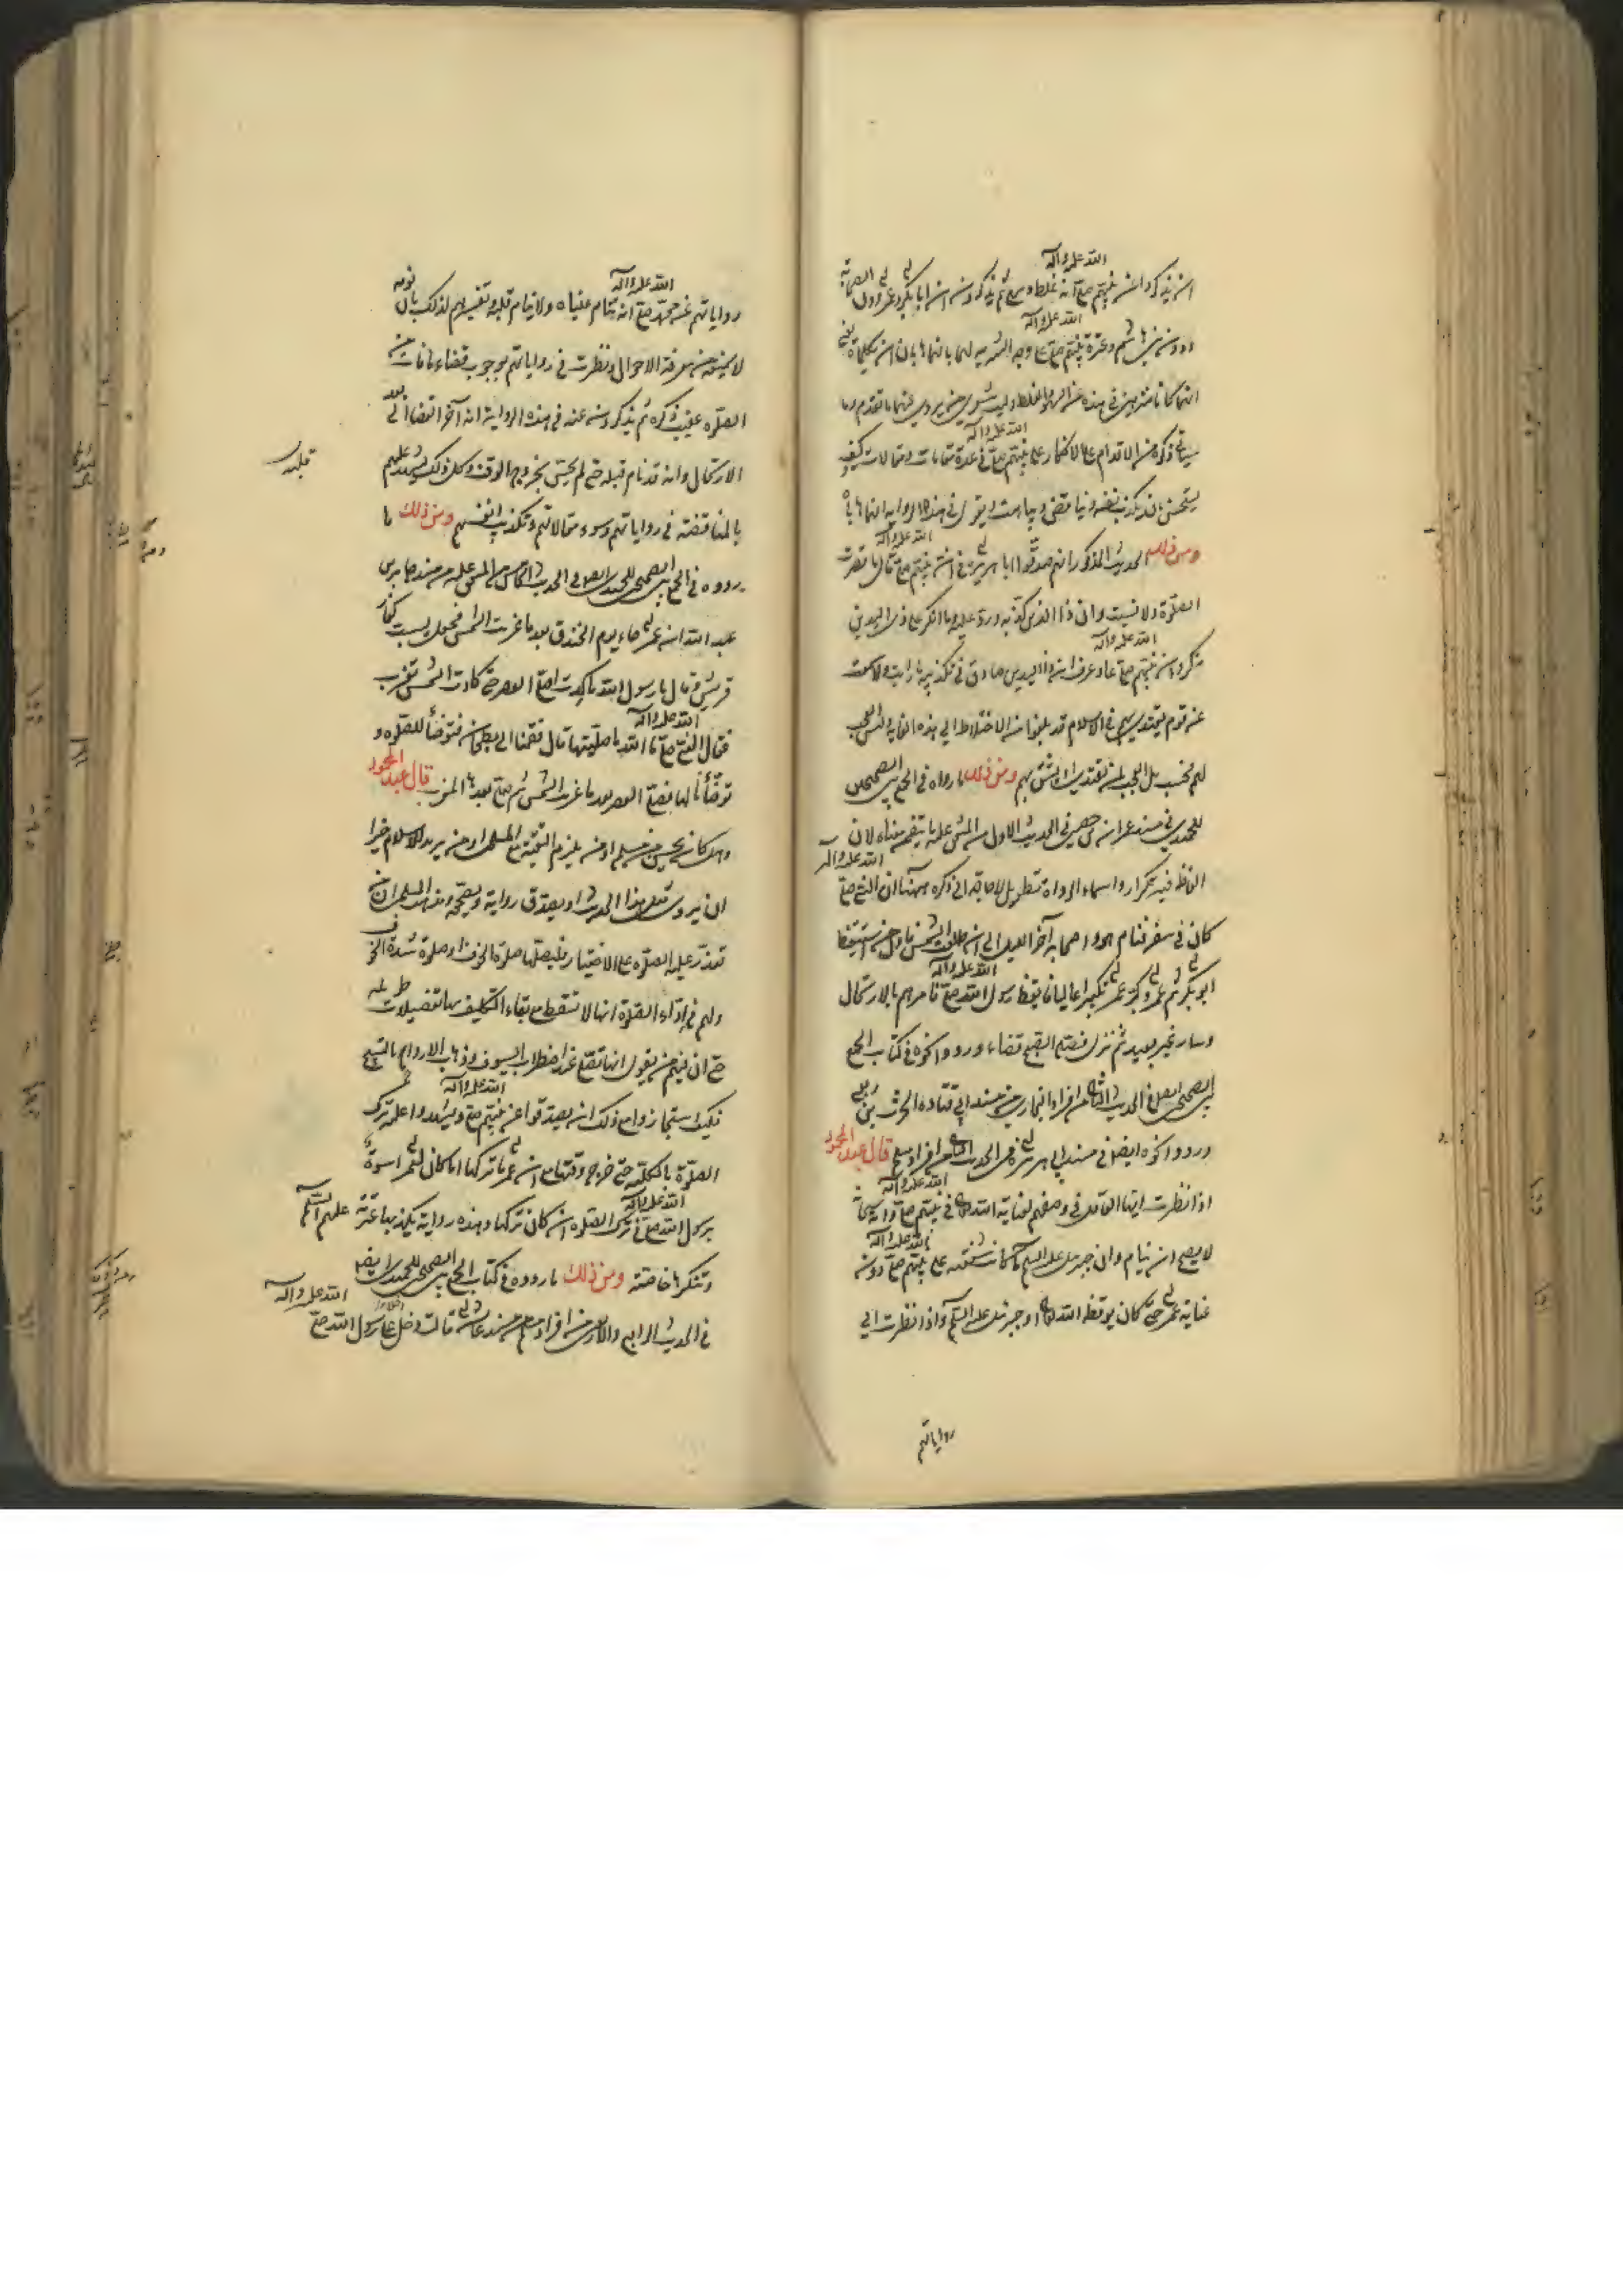 ان يذكروا عن نبيهم صلى الله عليه وآله انه غلط وسهى ثم يذكرون ان ابا بكر وعمر والصحابة
دون بني هاشم وعترة نبيهم صلى الله عليه وآله
انهما كانا منزهين في هذه عن السهو والغلط وليت شعري من يروي عنهما ما تقدم وما
سيأتي ذكره من الاقدام على الانكار على نبيهم صلى الله عليه وآله في عدة مقامات ومقالات كيف
يستحسن ان يكذب نفسه ويناقض ويقول في هذه الرواية انهما هابا
ومن ذلك الحديث المذكور انهم صدقوا ابا هريرة في ان نبيهم صلى الله عليه وآله قال ما قصرت
الصلوة ولا نسيت وان ذا اليدين كذبه ورد عليه وما انكر على ذي اليدين
يذكرون ان نبيهم صلى الله عليه وآله عاد وعرف ان ذا اليدين صادق في تكذيبه ما رأيت ولا سمعت
عن قوم يقتدى بهم في الاسلام قد بلغوا من الاختلاط الى هذه الغاية وليس العجب
لهم فحسب بل العجب لمن يقتدي او يثق بهم ومن ذلك ما رواه في الجمع بين الصحيحين
للحميدي في مسند عمران بن حصين في الحديث الاول من المتفق عليه ما يتضمن معناه لان
الفاظه فيه تكرار واسماء الرواة تطويل لا حاجة الى ذكره ههنا ان النبي صلى الله عليه وآله
كان في سفر فنام هو واصحابه آخر الليل الى ان طلعت الشمس فاول من استيقظ
ابو بكر ثم عمر وكبر عمر تكبيرا عاليا فايقظ رسول الله صلى الله عليه وآله فامرهم بالارتحال
وسار غير بعيد ثم نزل فصلى الصبح قضاء ورووا نحوه في كتاب الجمع
بين الصحيحين ايضا في الحديث الثاني من افراد البخاري من مسند ابي قتادة الحرث بن ربعي
ورووا نحوه ايضا في مسند ابي هريرة في الحديث من افراد مسلم قال عبد المحمود
اذا نظرت ايها العاقل في وصفهم لعناية الله تعالى في نبيهم صلى الله عليه وآله وانه
لا يصح ان ينام وان جبرئيل عليه السلام شفقته على نبيهم صلى الله عليه وآله دون
عناية عمر حتى كان يوقظه الله تعالى او جبرئيل عليه السلام واذا نظرت الى
رواياتهم
رواياتهم عن محمد صلى الله عليه وآله انه تنام عيناه ولا ينام قلبه وتفسيرهم لذلك بان نومه
لا يمنعه من معرفة الاحوال ونظرت في رواياتهم بوجوب قضاء ما فات من
الصلوة عقيب ذكره ثم يذكرون عنه في هذه الرواية انه آخر القضاء الى بعد
الارتحال وانه قد نام قلبه حتى لم يحس بخروج الوقت وكل ذلك يشهد عليهم
بالمناقضة في رواياتهم وسوء مقالاتهم وتكذيب انفسهم ومن ذلك ما
رووه في الجمع بين الصحيحين للحميدي ايضا في الحديث من المتفق عليه من مسند جابر بن
عبد الله ان عمر جاء يوم الخندق بعد ما غربت الشمس فجعل يسب كفار
قريش وقال يا رسول الله ما كدت اصلي العصر حتى كادت الشمس تغرب
فقال النبي صلى الله عليه وآله ما صليتها قال فقمنا الى بطحان فتوضأ للصلوة و
توضأنا لها فصلى العصر بعد ما غربت الشمس ثم صلى بعدها المغرب قال عبد المحمود
وهل كان يحسن من مسلم او من يلزم التقية مع المسلمين او من يريد للاسلام خيرا
ان يروي مثل هذا الحديث او يصدق رواية وبصحيحه وعند المسلمين ان من
تعذر عليه الصلوة على الاختيار فليصلها صلوة الخوف او صلوة شدة الخوف
ولهم في اداء الصلوة انها لا تسقط مع بقاء التكليف بها تفضيلات طويلة
حتى ان فيهم من يقول انها تصلى عند اضطراب السيوف وذهاب الارواح بالتسبيح
فكيف استجازوا مع ذلك ان يصدقوا عن نبيهم صلى الله عليه وآله ويشهدوا عليه ترك
الصلوة بالكلية حتى خرج وقتها مع ان عمر ما تركها اما كان لعمر اسوة
برسول الله صلى الله عليه وآله في ترك الصلوة ان كان تركها وهذه رواية يكذبها عترته عليهم السلم
وتنكرها خاصته ومن ذلك ما رووه في كتاب الجمع بين الصحيحين للحميدي ايضا
في الحديث الرابع والاربعين من افراد مسلم من مسند عائشة قالت دخل على رسول الله صلى الله عليه وآله